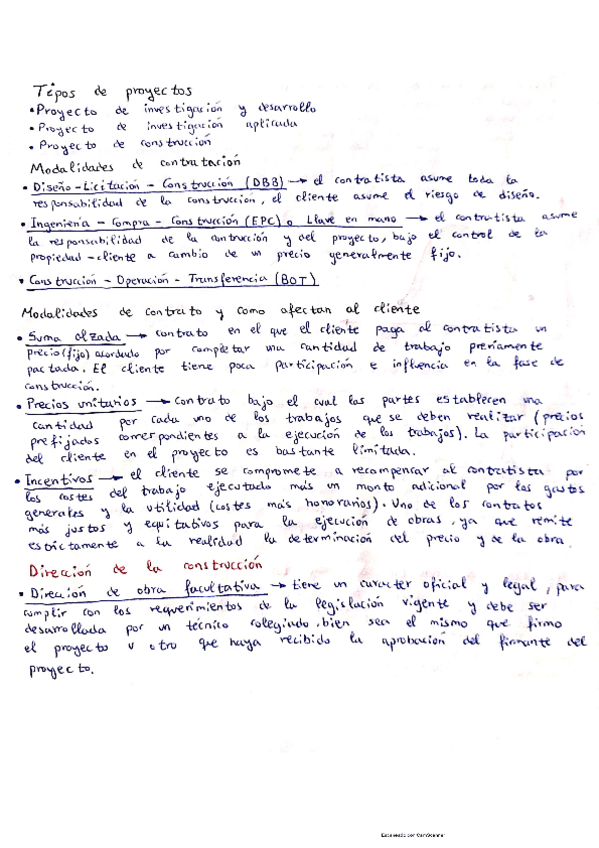 Tipos de proyectos
• Proyecto de investigación y desarrollo
• Proyecto de investigación aplicada
• Proyecto de construcción
Modalidades de contratación
• Diseño - Licitación - Construcción (DBB) → el contratista asume toda la
responsabilidad de la construcción, el cliente asume el riesgo de diseño.
• Ingeniería - Compra - Construcción (EPC) o Llave en mano → el contratista asume
la responsabilidad de la contrucción y del proyecto, bajo el control de la
propiedad - cliente a cambio de un precio generalmente fijo.
• Construcción - Operación - Transferencia (BOT)
Modalidades de contrato y como afectan al cliente
• Suma alzada → contrato en el que el cliente paga al contratista un
precio (fijo) acordado por completar una cantidad de trabajo previamente
pactada. El cliente tiene poca participación e influencia en la fase de
construcción.
• Precios unitarios → contrato bajo el cual las partes establecen una
cantidad por cada uno de los trabajos que se deben realizar (precios
prefijados correspondientes a la ejecución de los trabajos). La participación
del cliente en el proyecto es bastante limitada.
• Incentivos → el cliente se compromete a recompensar al contratista por
los costes del trabajo ejecutado más un monto adicional por los gastos
generales y la utilidad (costes más honorarios). Uno de los contratos
más justos y equitativos para la ejecución de obras, ya que remite
estrictamente a la realidad la determinación del precio y de la obra.
Dirección de la construcción
• Dirección de obra facultativa → tiene un caracter oficial y legal, para
cumplir con los requerimientos de la legislación vigente y debe ser
desarrollada por un técnico colegiado, bien sea el mismo que firmo
el proyecto u otro que haya recibido la aprobación del firmante del
proyecto.
Escaneado con CamScanner